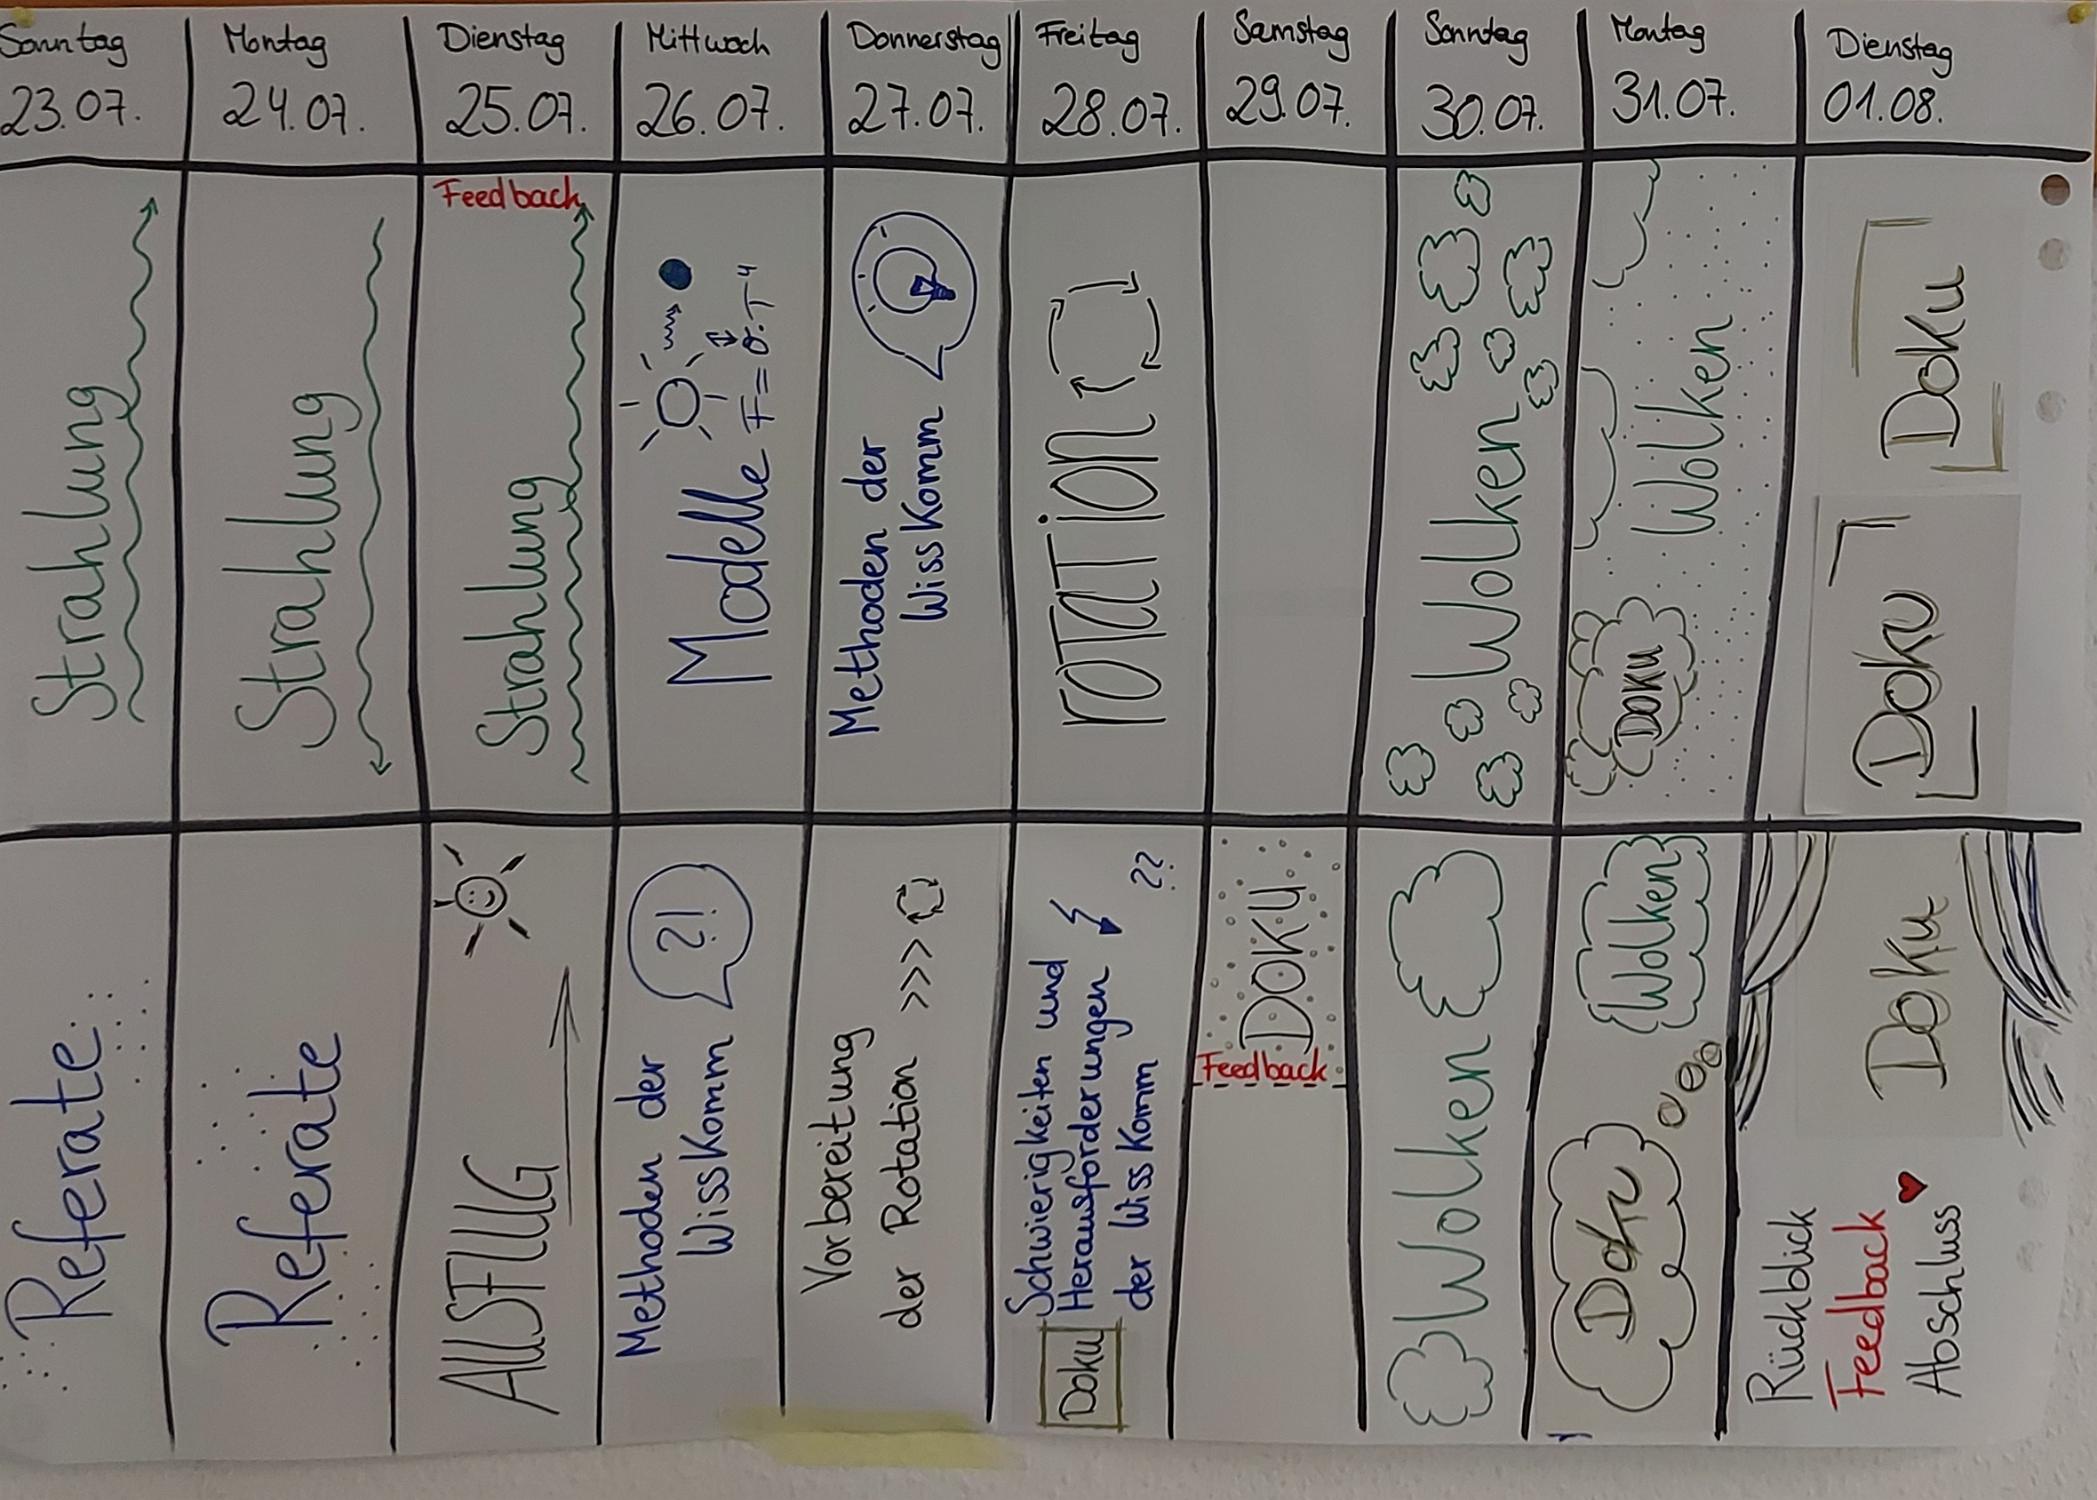 Sonntag
23.07.
Montag
24.07.
Dienstag
25.07.
Mittwoch
26.07.
Donnerstag
27.07.
Freitag
28.07.
Samstag
29.07.
Sonntag
30.07.
Montag
31.07.
Dienstag
01.08.
Strahlung
Strahlung
Feedback
Strahlung
Modelle F = σ·T⁴
Methoden der
WissKomm
rOTaTion
Wolken
DOKU
Wolken
Doku
Doku
Referate
Referate
AUSFlUG
Methoden der
WissKomm
?!
Vorbereitung
der Rotation >>>
Doku
Schwierigkeiten und
Herausforderungen
der WissKomm
??
DOKU
Feedback
Wolken
Wolken
Doku
Doku
Rückblick
Feedback
Abschluss